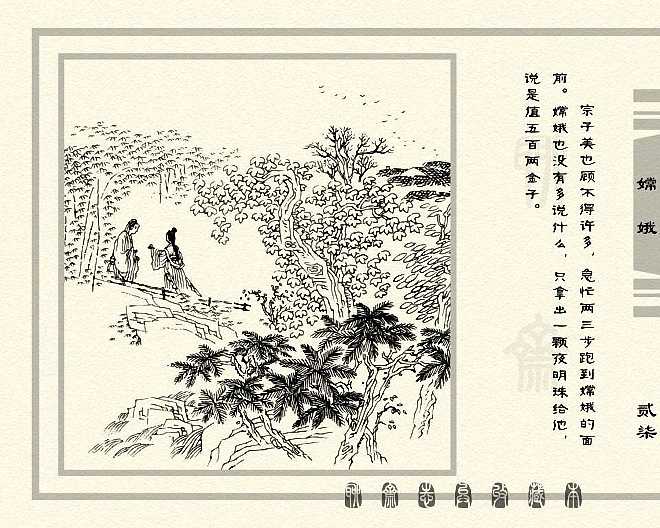 宗子美也顾不得许多，急忙两三步跑到嫦娥的面
前。嫦娥也没有多说什么，只拿出一颗夜明珠给他，
说是值五百两金子。
嫦娥
贰柒
聊斋志异收藏本